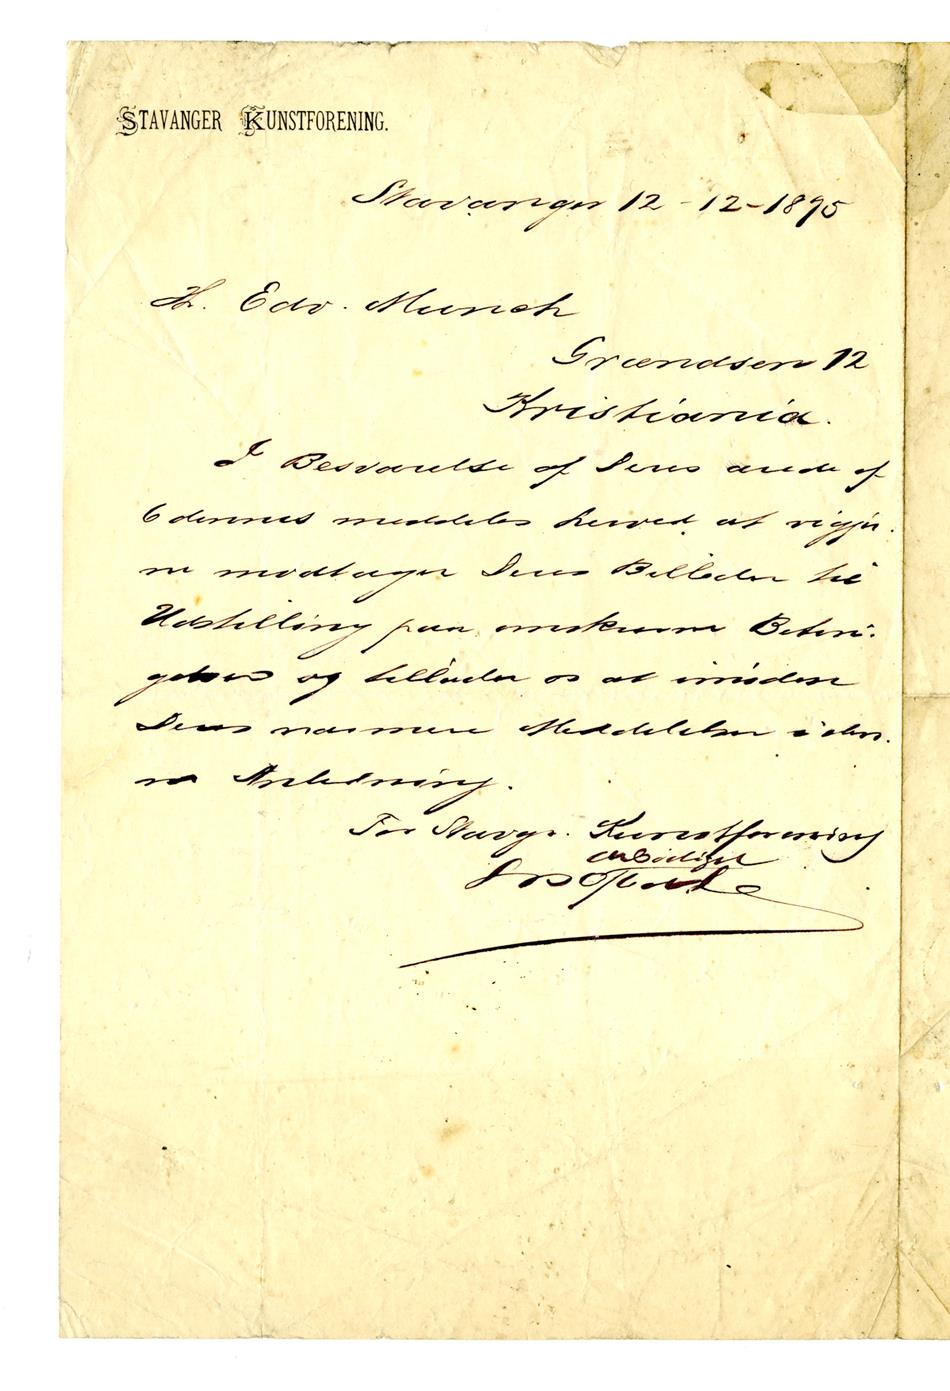 STAVANGER KUNSTFORENING.
Stavanger 12-12-1895
H. Edv. Munch
Grændsen 12
Kristiania.
I Besvarelse af Deres ærede af
6 dennes meddeles herved at vi gjer-
ne modtager Deres Billeder til
Udstilling paa omskrevne Betin-
gelser og tillader os at imødese
Deres nærmere Meddelelser i den-
ne Anledning.
For Stavgr. Kunstforening
ærbødigst